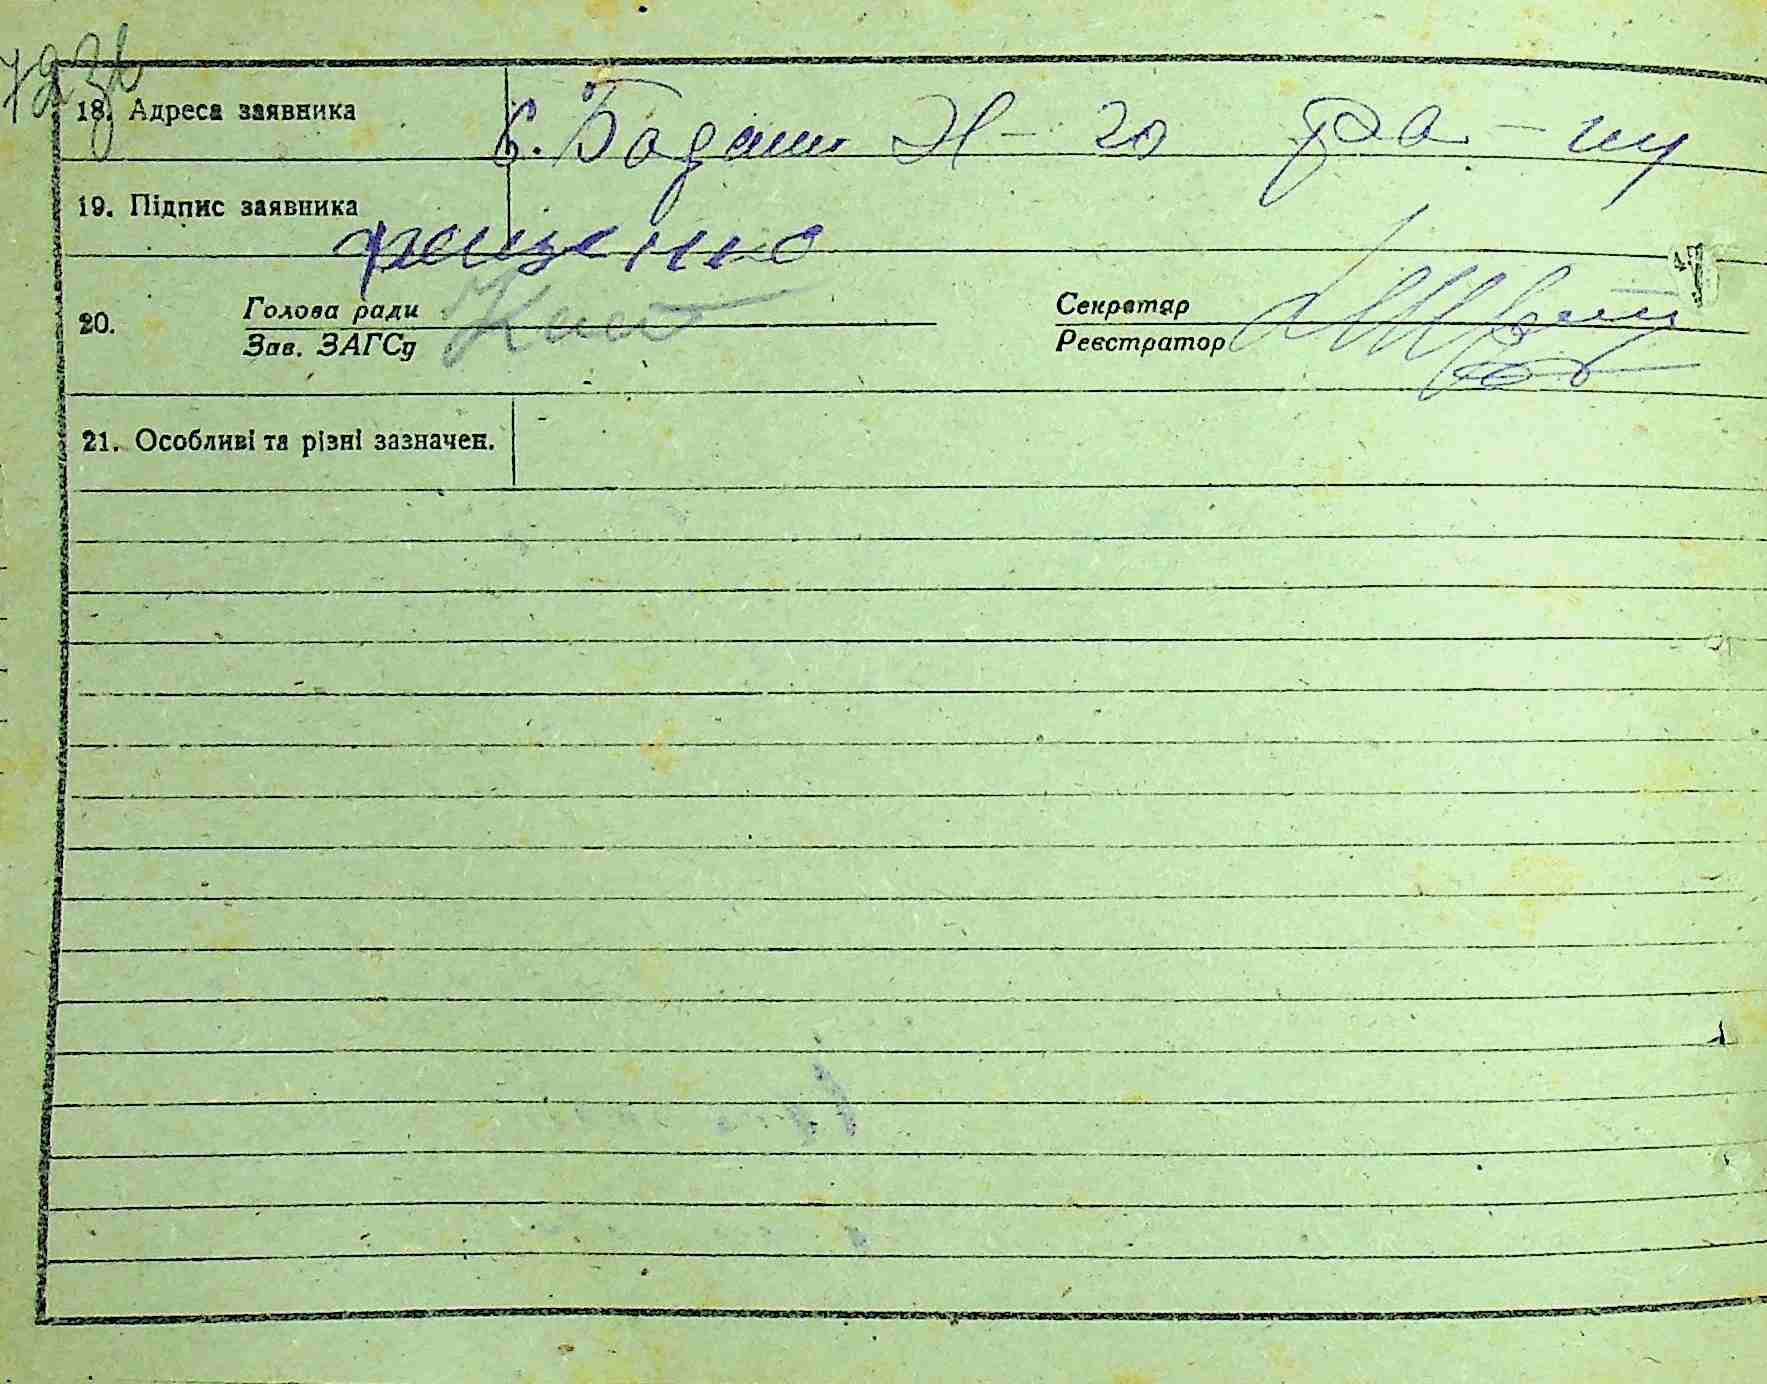 18. Адреса заявника с. Бодаш Н-го ра-ну
19. Підпис заявника
20. Голова ради Секретар
Зав. ЗАГСу Реєстратор
21. Особливі та різні зазначен.